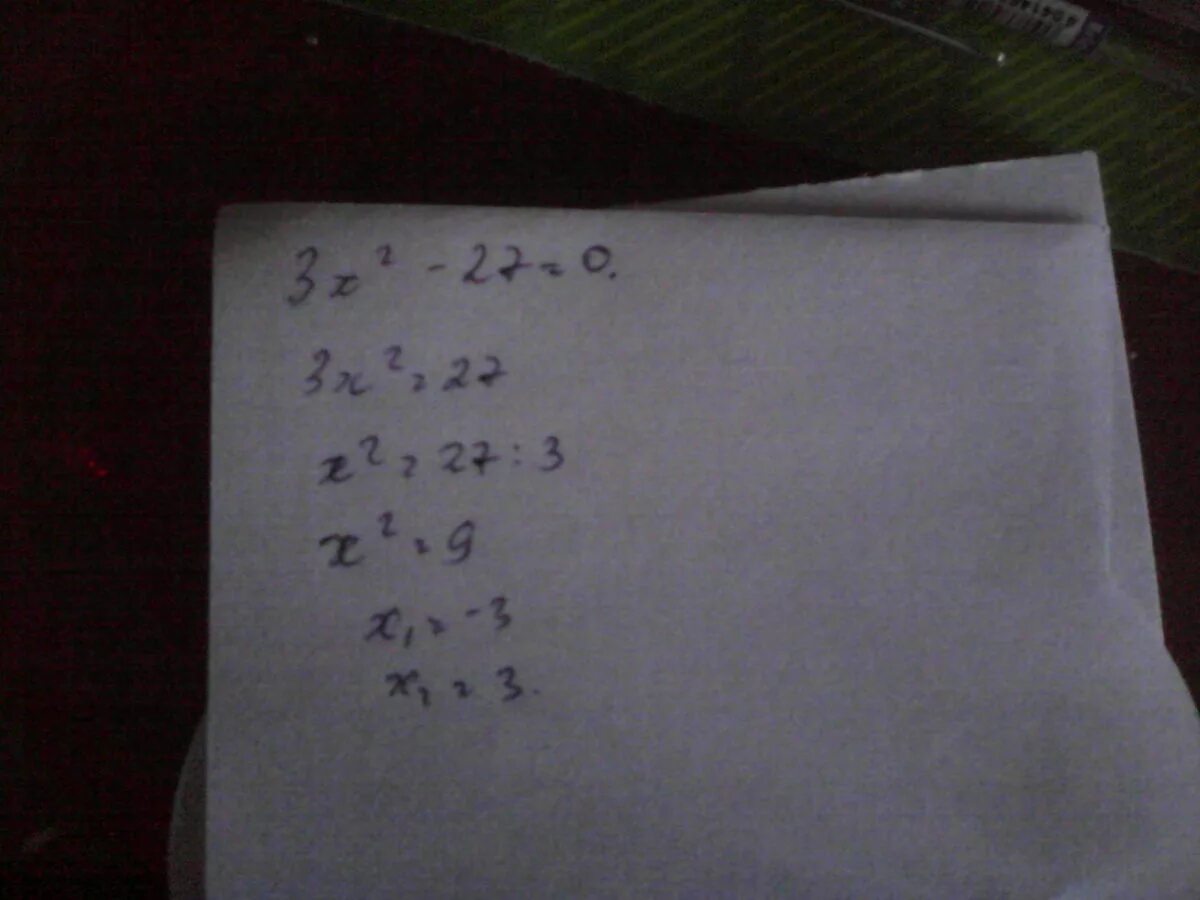 3x² - 27 = 0.
3x² = 27
x² = 27 : 3
x² = 9
x₁ = -3
x₂ = 3.